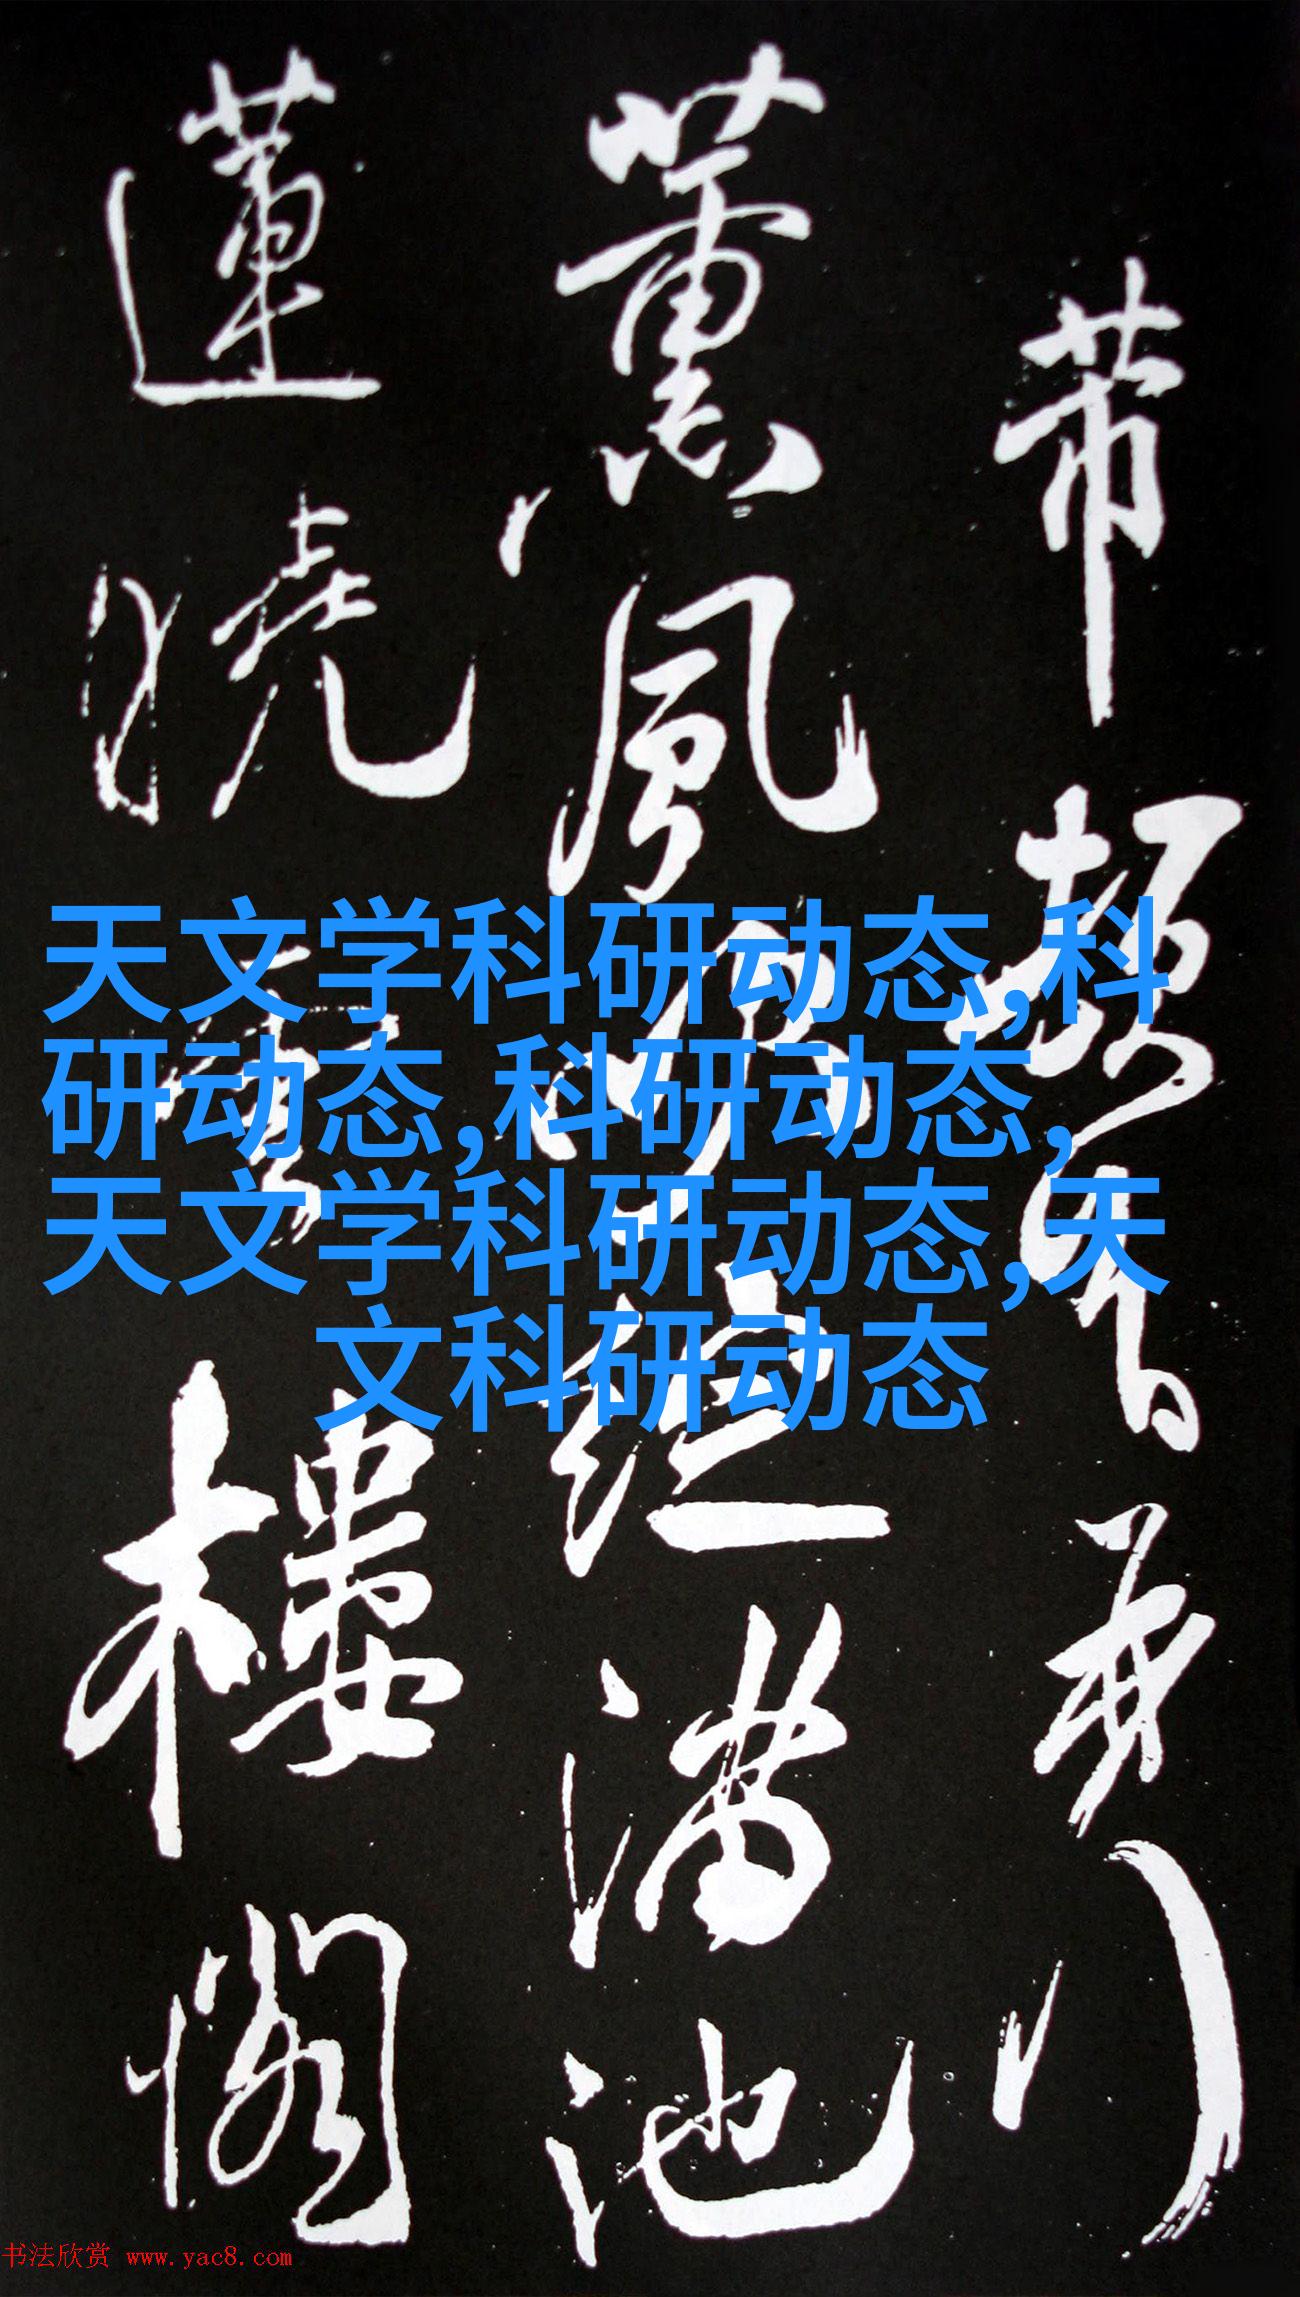 芾頓首
薰風滿池
蓮繞樓閣
天文学科研动态,科
研动态,科研动态,
天文学科研动态,天
文科研动态
书法欣赏 www.yac8.com